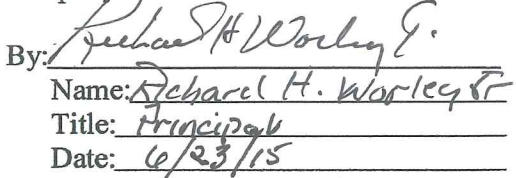 By: Richard H Worley Jr.
Name: Richard H. Worley Jr
Title: Principal
Date: 6/23/15